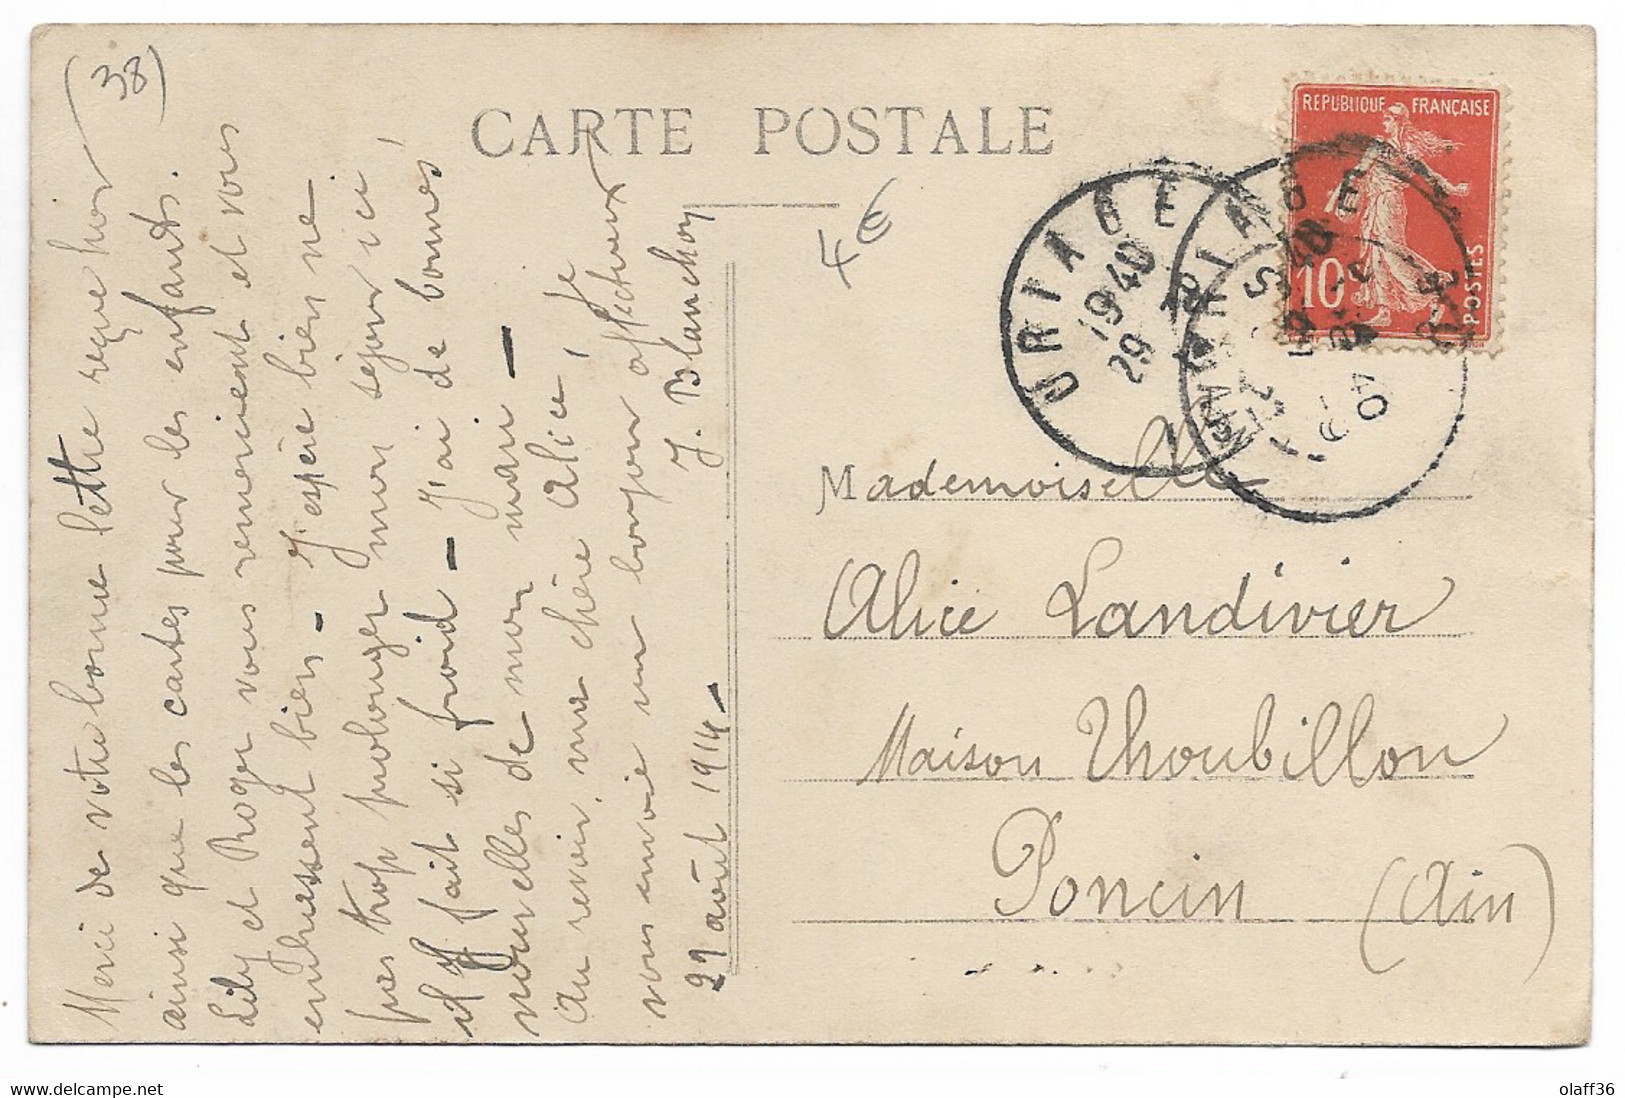 (38)
CARTE POSTALE
4€
REPUBLIQUE FRANÇAISE
10
POSTES
URIAGE
19 40
29
Merci de votre bonne lettre reçue hier
ainsi que les cartes pour les enfants.
Lily et Roger vous remercient et vous
embrassent bien - J'espère bien ne
pas trop prolonger mon séjour ici
il y fait si froid - J'ai de bonnes
nouvelles de mon mari -
Au revoir, ma chère Alice, je
vous envoie un bonjour affectueux
J. Blanchoy
29 août 1914 -
Mademoiselle
Alice Landivier
Maison Thoubillon
Poncin (Ain)
olaff36